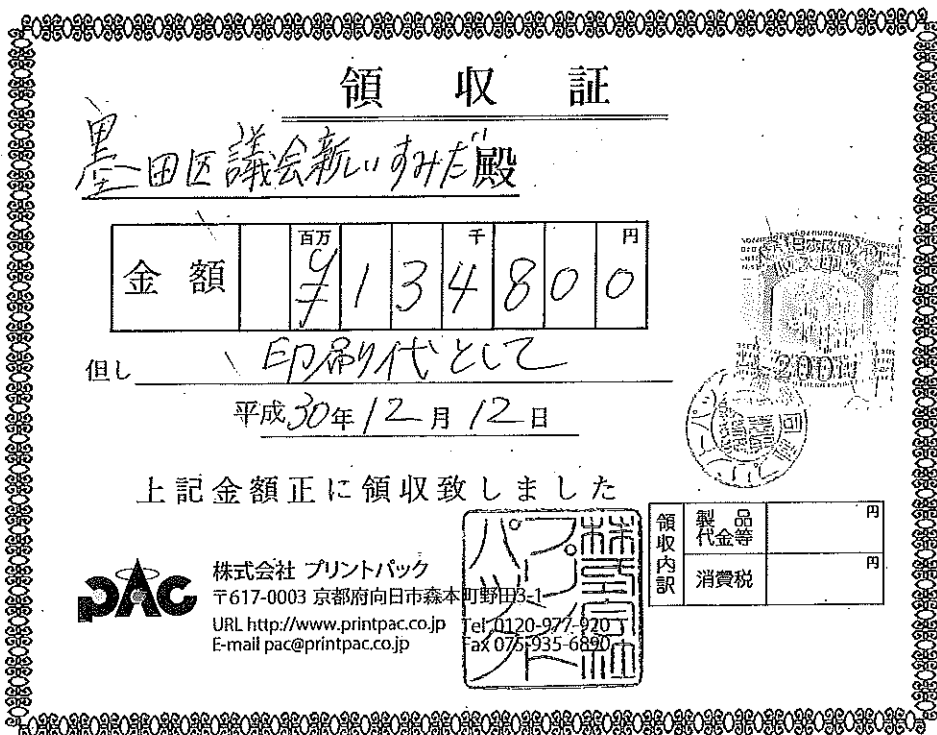 領収証
墨田区議会新しいすみだ殿
金額 百万 千 円
¥134800
但し 印刷代として
平成30年12月12日
上記金額正に領収致しました
領収内訳
製品代金等 円
消費税 円
pac
株式会社 プリントパック
〒617-0003 京都府向日市森本町野田3-1
URL http://www.printpac.co.jp Tel 0120-977-920
E-mail pac@printpac.co.jp Fax 075-935-6890
株式会社プリントパック
200円